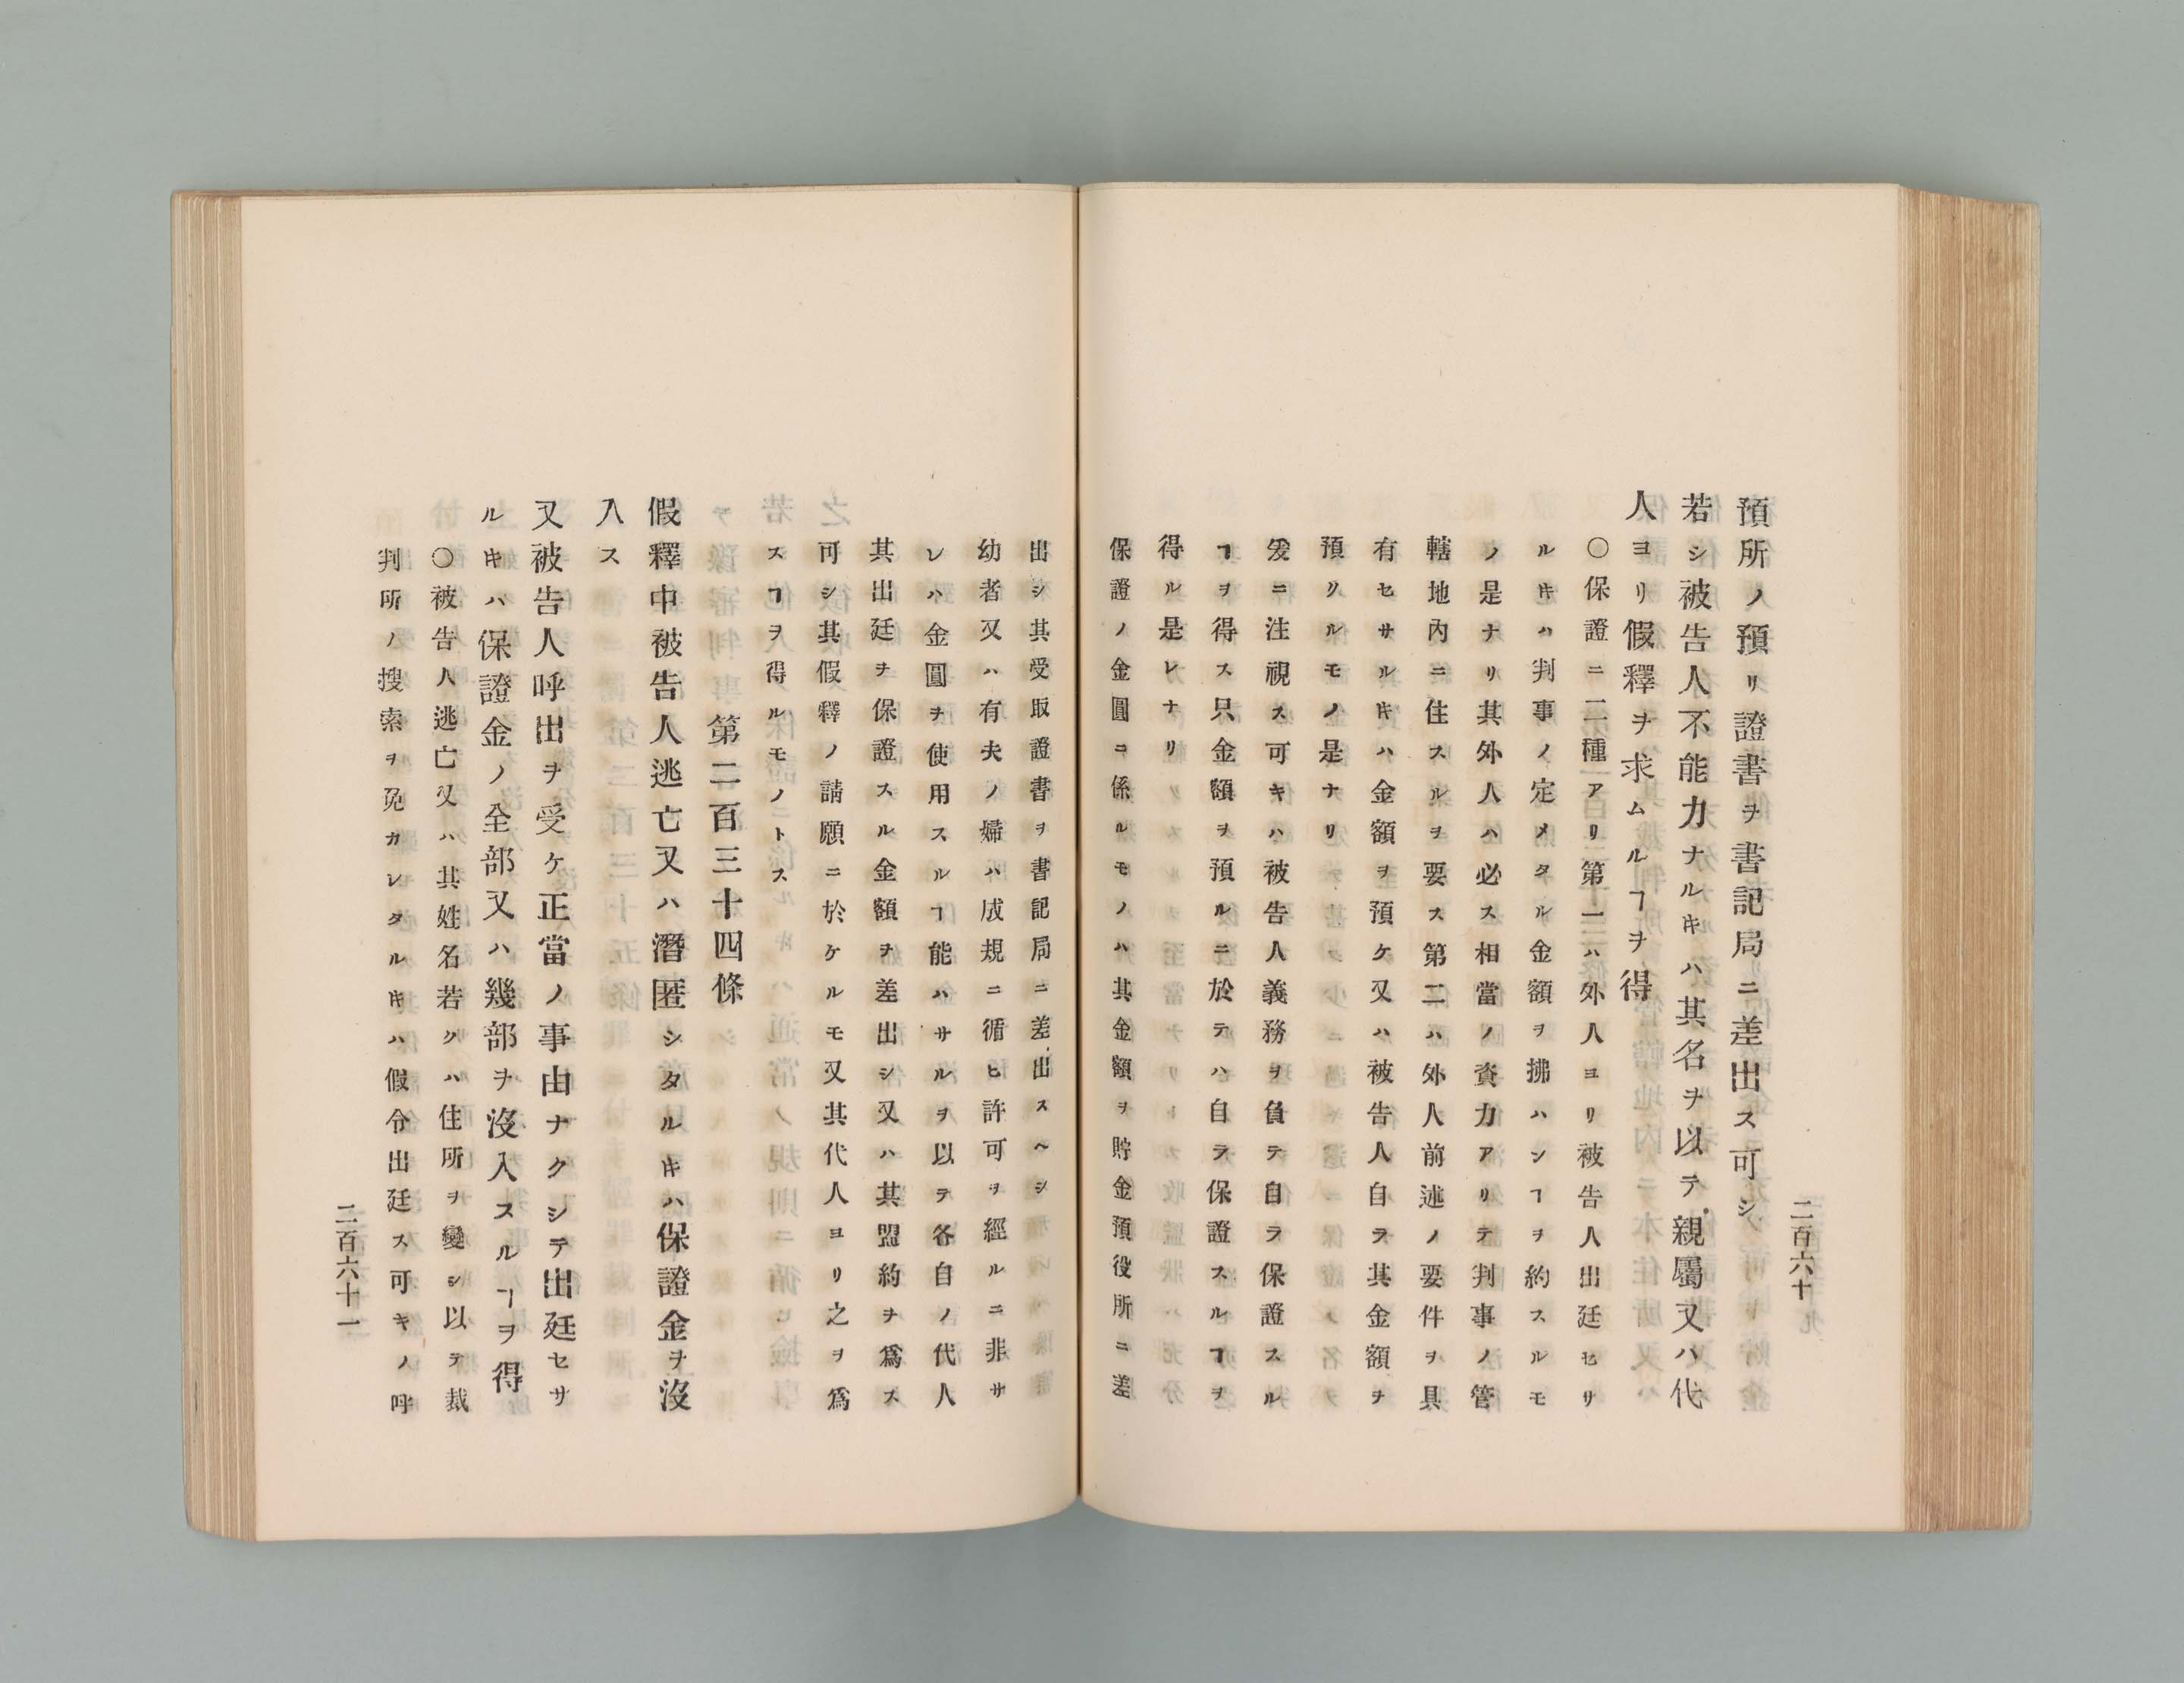 二百六十
預所ノ預リ證書ヲ書記局ニ差出ス可シ
若シ被告人不能力ナルキハ其名ヲ以テ親屬又ハ代
人ヨリ假釋ヲ求ムルヿヲ得
〇保證ニ二種アリ第一ハ外人ヨリ被告人出廷セサ
ルキハ判事ノ定メタル金額ヲ拂ハンヿヲ約スルモ
ノ是ナリ其外人ハ必ス相當ノ資力アリテ判事ノ管
轄地內ニ住スルヲ要ス第二ハ外人前述ノ要件ヲ具
有セサルキハ金額ヲ預ケ又ハ被告人自ラ其金額ヲ
預クルモノ是ナリ
爰ニ注視ス可キハ被告人義務ヲ負テ自ラ保證スル
ヿヲ得ス只金額ヲ預ルニ於テハ自ラ保證スルヿヲ
得ル是レナリ
保證ノ金圓ニ係ルモノハ其金額ヲ貯金預役所ニ差
出シ其受取證書ヲ書記局ニ差出スヘシ
幼者又ハ有夫ノ婦ハ成規ニ循ヒ許可ヲ經ルニ非サ
レハ金圓ヲ使用スルヿ能ハサルヲ以テ各自ノ代人
其出廷ヲ保證スル金額ヲ差出シ又ハ其盟約ヲ爲ス
可シ其假釋ノ請願ニ於ケルモ又其代人ヨリ之ヲ爲
スヿヲ得ルモノトス
第二百三十四條
假釋中被告人逃亡又ハ潛匿シタルキハ保證金ヲ沒
入ス
又被告人呼出ヲ受ケ正當ノ事由ナクシテ出廷セサ
ルキハ保證金ノ全部又ハ幾部ヲ沒入スルヿヲ得
〇被告人逃亡又ハ其姓名若クハ住所ヲ變シ以テ裁
判所ノ搜索ヲ免カレタルキハ假令出廷ス可キノ呼
二百六十一